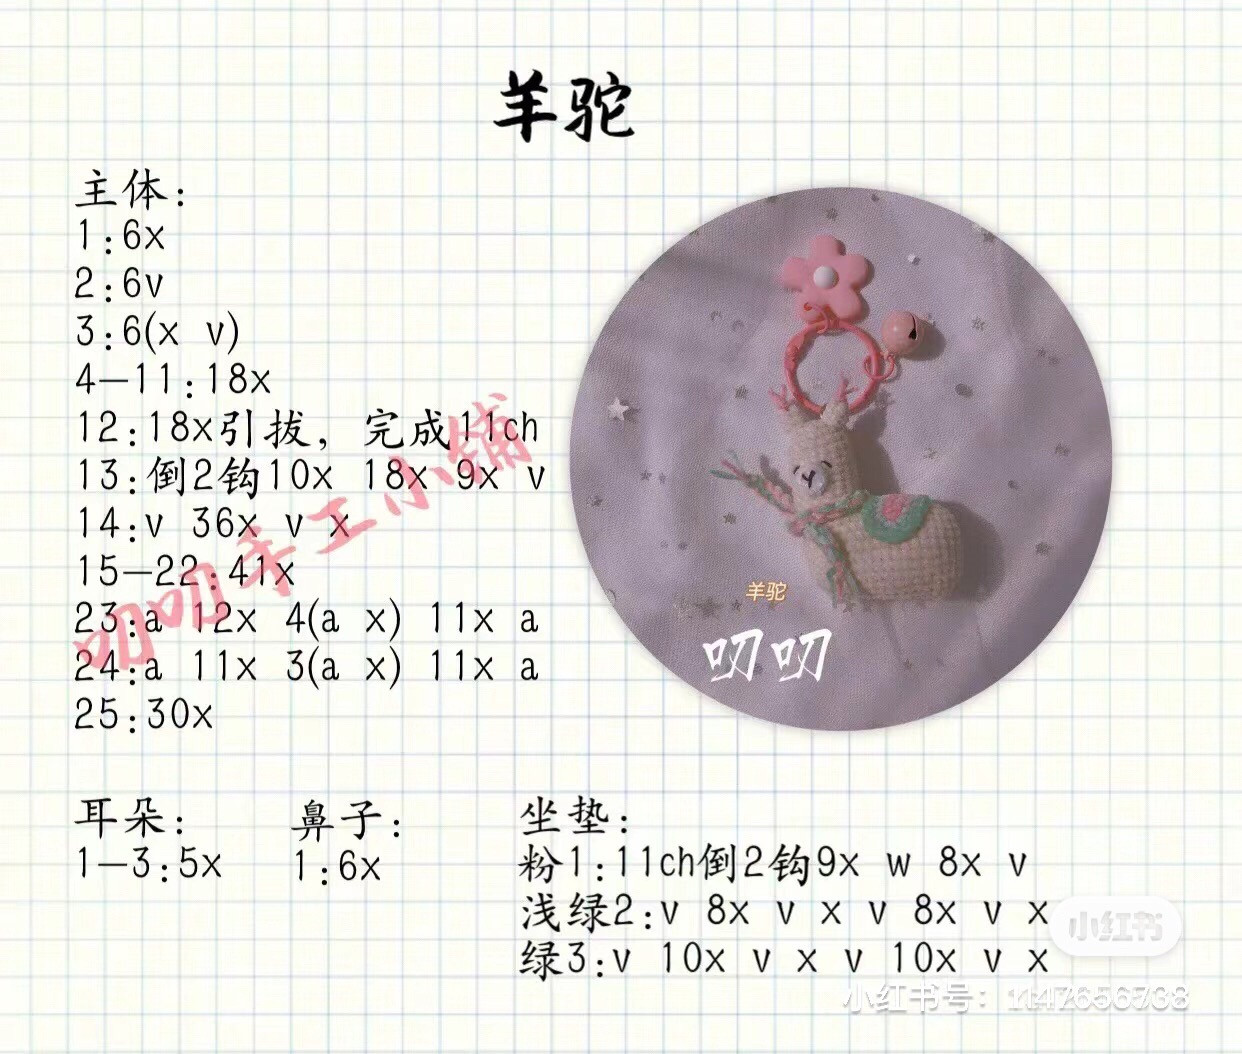 羊驼
主体:
1:6x
2:6v
3:6(x v)
4—11:18x
12:18x引拔, 完成11ch
13:倒2钩10x 18x 9x v
14:v 36x v x
15—22:41x
23:a 12x 4(a x) 11x a
24:a 11x 3(a x) 11x a
25:30x
叨叨手工小铺
羊驼
叨叨
耳朵:
1—3:5x
鼻子:
1:6x
坐垫:
粉1:11ch倒2钩9x w 8x v
浅绿2:v 8x v x v 8x v x
绿3:v 10x v x v 10x v x
小红书
小红书号: